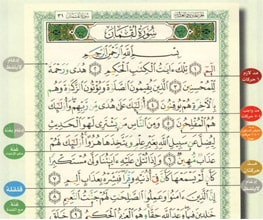 سُورَةُ لُقْمَانَ
بِسْمِ ٱللَّهِ ٱلرَّحْمَٰنِ ٱلرَّحِيمِ
الٓمٓ ۝١ تِلْكَ ءَايَٰتُ ٱلْكِتَٰبِ ٱلْحَكِيمِ ۝٢ هُدًى وَرَحْمَةً
لِّلْمُحْسِنِينَ ۝٣ ٱلَّذِينَ يُقِيمُونَ ٱلصَّلَوٰةَ وَيُؤْتُونَ ٱلزَّكَوٰةَ وَهُم
بِٱلْءَاخِرَةِ هُمْ يُوقِنُونَ ۝٤ أُو۟لَٰٓئِكَ عَلَىٰ هُدًى مِّن رَّبِّهِمْ وَأُو۟لَٰٓئِكَ
هُمُ ٱلْمُفْلِحُونَ ۝٥ وَمِنَ ٱلنَّاسِ مَن يَشْتَرِى لَهْوَ ٱلْحَدِيثِ
لِيُضِلَّ عَن سَبِيلِ ٱللَّهِ بِغَيْرِ عِلْمٍ وَيَتَّخِذَهَا هُزُوًا أُو۟لَٰٓئِكَ لَهُمْ
عَذَابٌ مُّهِينٌ ۝٦ وَإِذَا تُتْلَىٰ عَلَيْهِ ءَايَٰتُنَا وَلَّىٰ مُسْتَكْبِرًا
كَأَن لَّمْ يَسْمَعْهَا كَأَنَّ فِىٓ أُذُنَيْهِ وَقْرًا فَبَشِّرْهُ بِعَذَابٍ أَلِيمٍ ۝٧
إِنَّ ٱلَّذِينَ ءَامَنُوا۟ وَعَمِلُوا۟ ٱلصَّٰلِحَٰتِ لَهُمْ جَنَّٰتُ ٱلنَّعِيمِ ۝٨
خَٰلِدِينَ فِيهَا وَعْدَ ٱللَّهِ حَقًّا وَهُوَ ٱلْعَزِيزُ ٱلْحَكِيمُ ۝٩ خَلَقَ
قلقلة